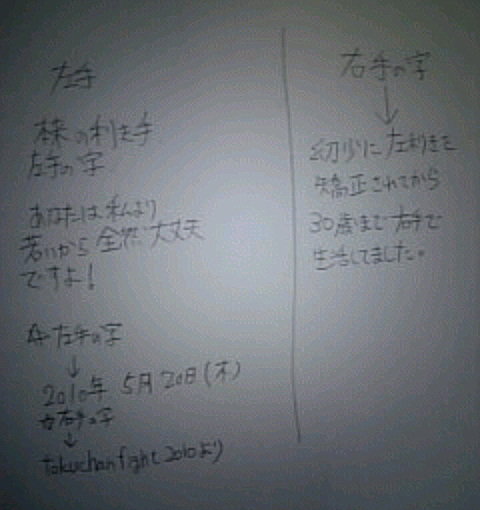 左手
本来の利き手
左手の字
あなたは私より
若いから全然大丈夫
ですよ!
左手の字
↓
2010年 5月20日(木)
右手の字
↓
tokuchanfight2010より
右手の字
↓
幼少に左利きを
矯正されてから
30歳まで右手で
生活してました。